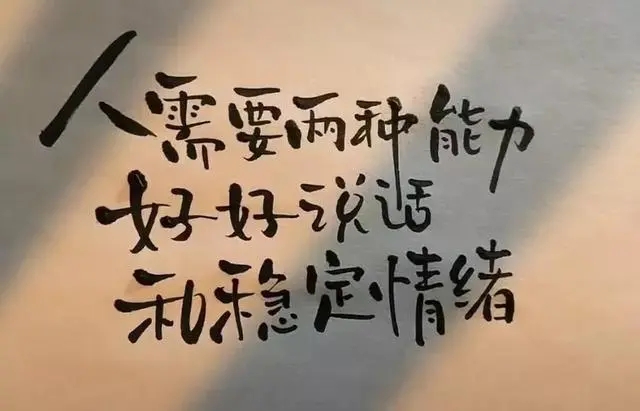 人需要两种能力
好好说话
和稳定情绪